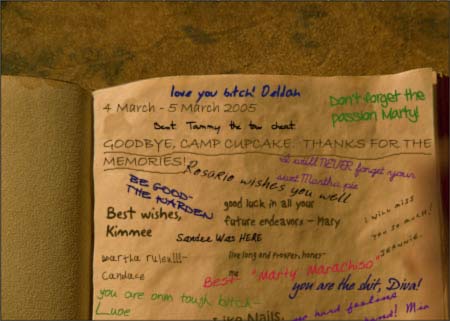 love you bitch! Delilah
4 March - 5 March 2005
Don't forget the
passion Marty!
Beat Tammy the tow cheat
GOODBYE, CAMP CUPCAKE. THANKS FOR THE
MEMORIES!
I will NEVER forget your
sweet Martha pie
Rosario wishes you well
BE GOOD-
THE WARDEN
good luck in all your
future endeavors - Mary
Best wishes,
Kimmee
i will miss
you so much!
JEANNIE
Sandee Was HERE
live long and prosper, honey-
me
martha rules!!!-
Candace
Best "Marty Marachiso"
you are the shit, Diva!
you are one tough bitch-
Luoe
Nails,